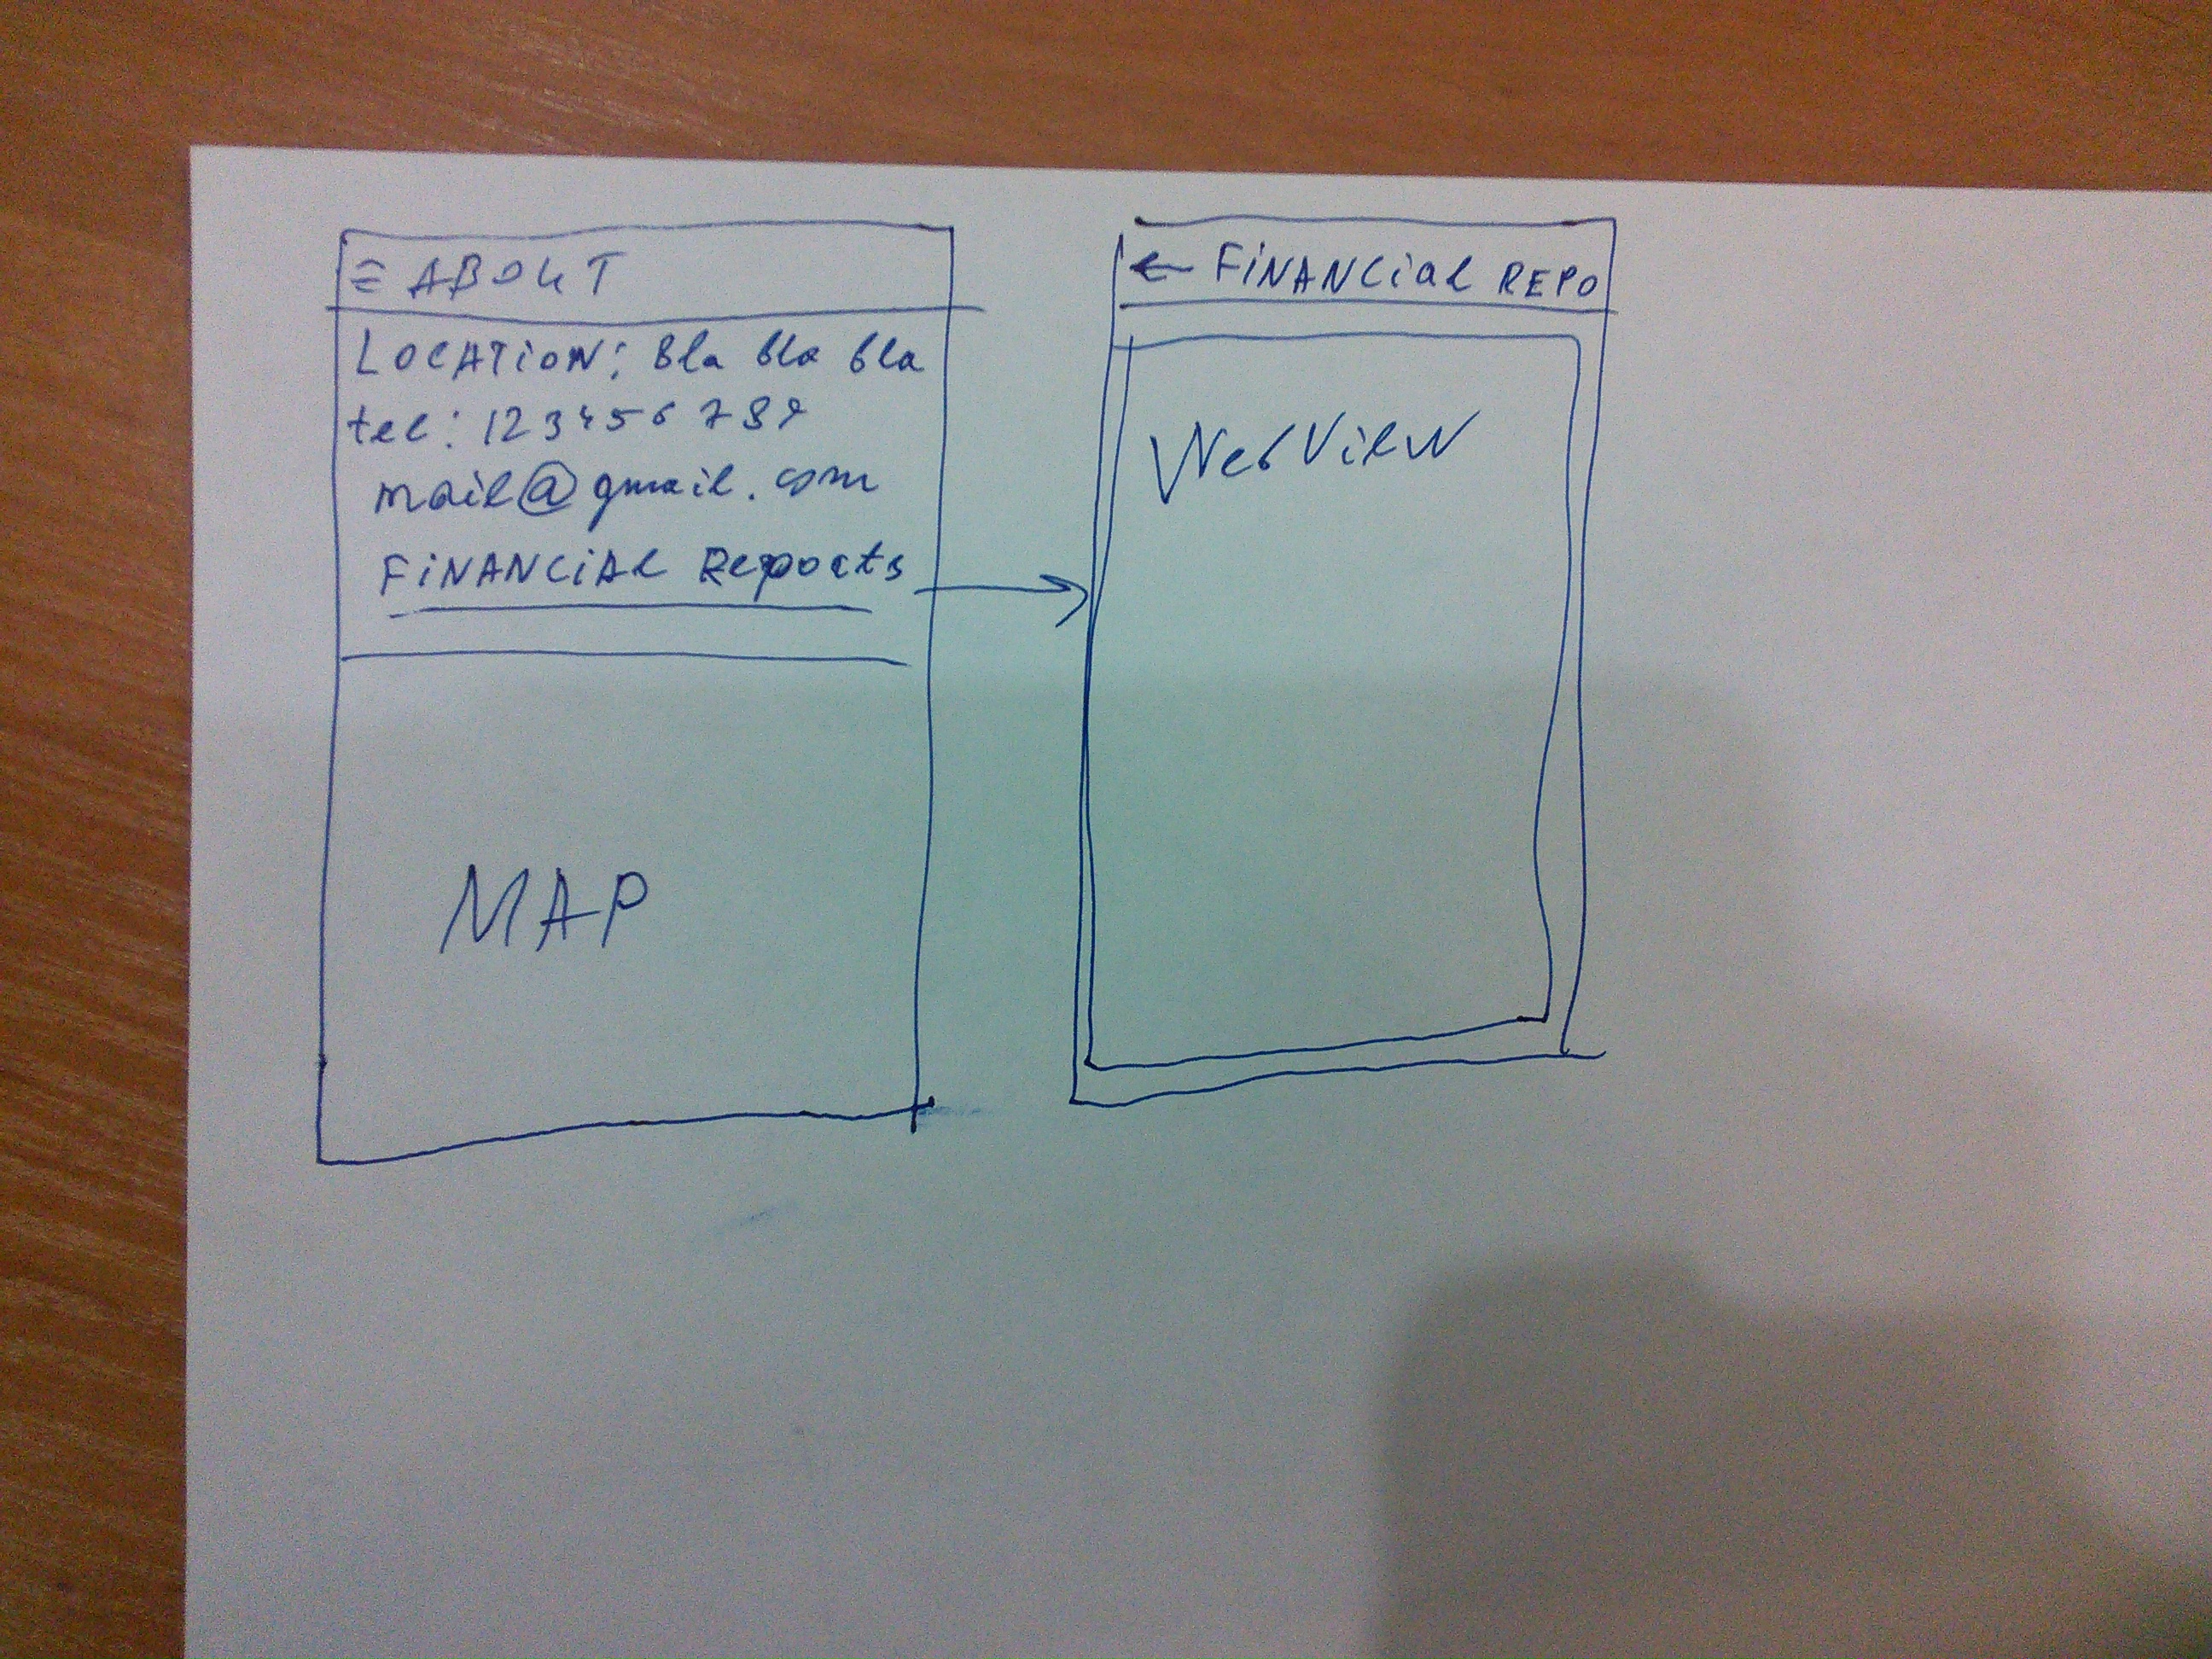 ABOUT
LOCATION: Bla bla bla
tel: 123456789
mail@gmail.com
FiNANCiAl Reports
MAP
← FiNANCial REPO
WebView